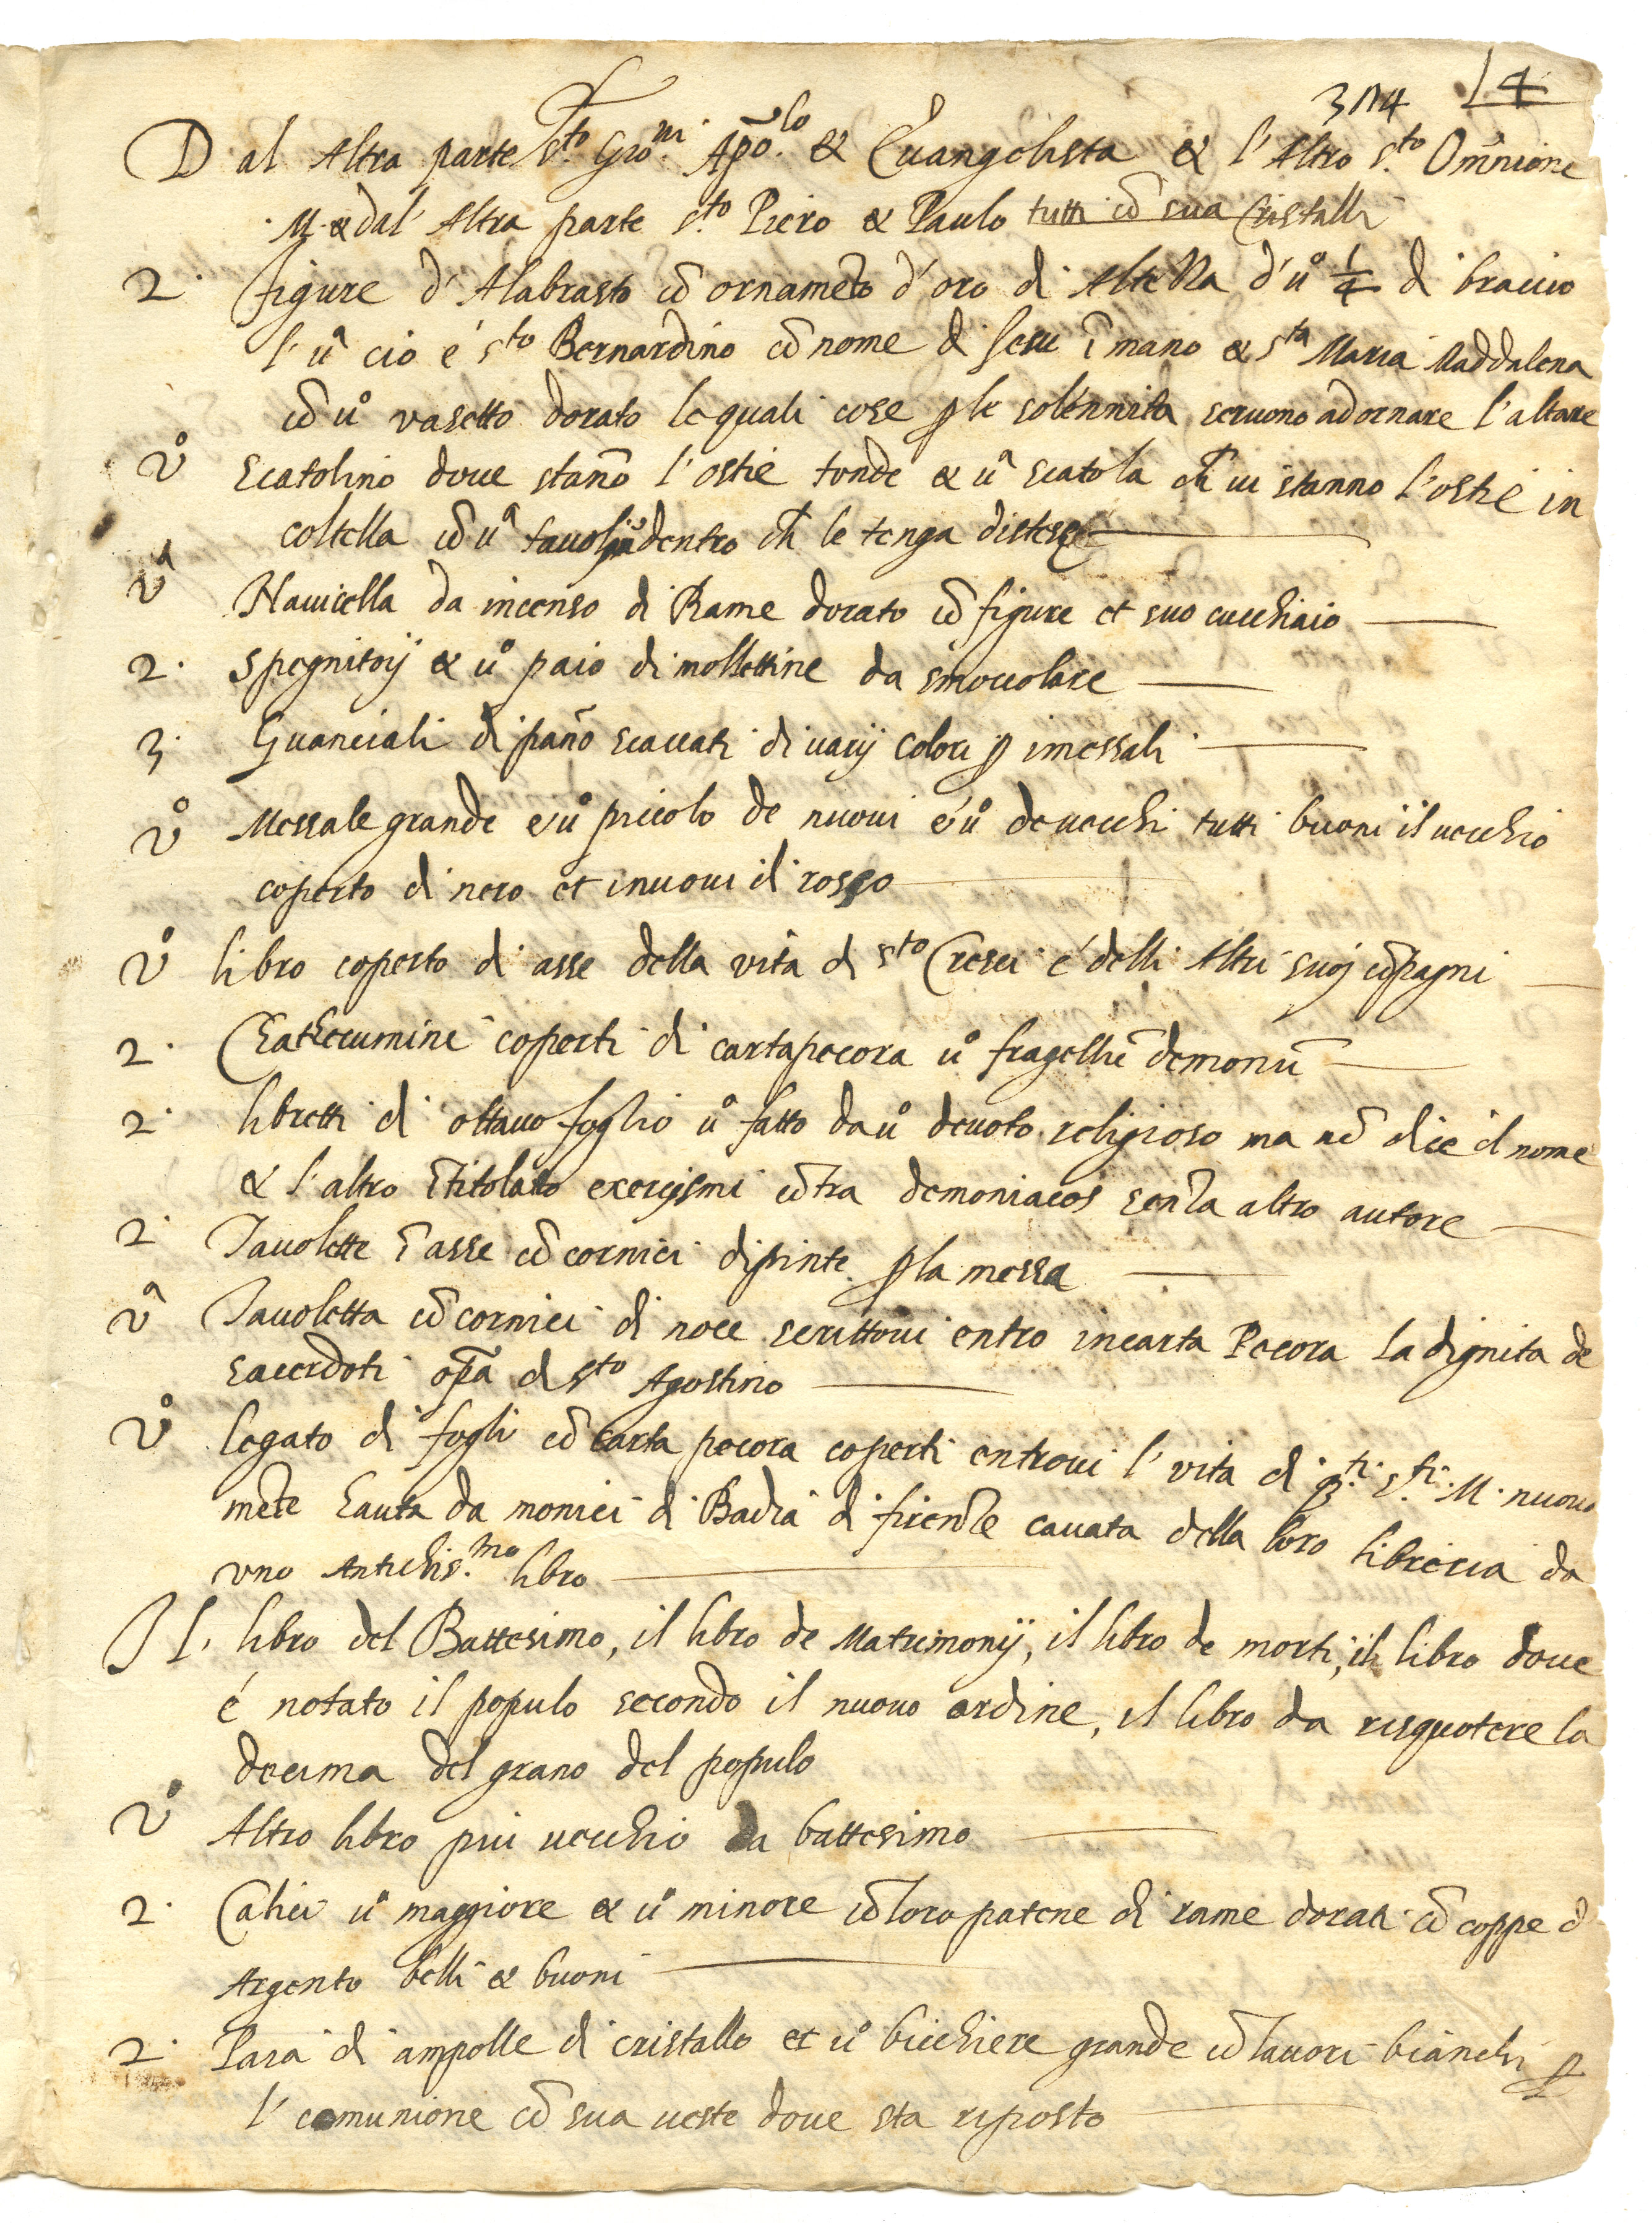 3114 14
Dal Altra parte S.to Gio.ni Apo.lo & Euangelista & l'Altro S.to Omnione
.M. & dal' Altra parte S.to Piero & Paulo tutti cō sua Cristalli
2. figure d'Alabrasto cō ornamēto d'oro di Altezza d'ů 1/4 di braccio
l'ůa cio é S.to Bernardino cō nome di Jesu ī mano & S.ta Maria Maddalena
cō ů vasetto dorato le quali cose ꝑ le solennita seruono adornare l'altare
Vo scatolino doue stanō l'ostie tonde & ua scatola ch̄ ui stanno l'ostie in
coltella cō ua dentro ch̄ le tenga distese
Va Nauicella da incenso di Rame dorato cō figure et suo cucchiaio
2. Spegnitoij & uo paio di mollettine da smoccolare
3. Guanciali di pañō scaccati di uarij colori ꝑ i messali
Vo Messale grande e uo piccolo de nuoui é uo de uecchi tutti buoni il uecchio
coperto di nero et i nuoui di rosso
Vo libro coperto di asse della vita di S.to Cresci é delli Altri suoj cōpagni
2. Chathecumini coperti di cartapecora uo fragellū demonū
2. libretti di ottauo foglio uo fatto da uo deuoto religioso ma nō dice il nome
& l'altro ītitolato exorcjsmi cōtra demoniacos senza altro autore
2. Tauolette ī asse cō cornici dipinte ꝑ la messa
Va Tauoletta cō cornici di noce scrittoui entro in carta Pecora la dignita de
sacerdoti opa di S.to Agostino
Vo legato di fogli cō carta pecora coperti entroui l'vita di q.ti S.ti M. nuoua
mēte hauta da monici di Badia di firenze cauata della loro libreria da
uno Antichis.mo libro
Il. libro del Battesimo, il libro de Matrimonij, il libro de morti, il libro doue
é notato il populo secondo il nuouo ordine, il libro da risquotere la
decima del grano del populo
Vo Altro libro piu uecchio da battesimo
2. Calici uo maggiore & uo minore cō loro patene di rame dorati cō coppe d
Argento belli & buoni
2. Para di ampolle di cristallo et uo bicchiere grande cō lauori bianchi ꝑ
l'comunione cō sua ueste doue sta riposto